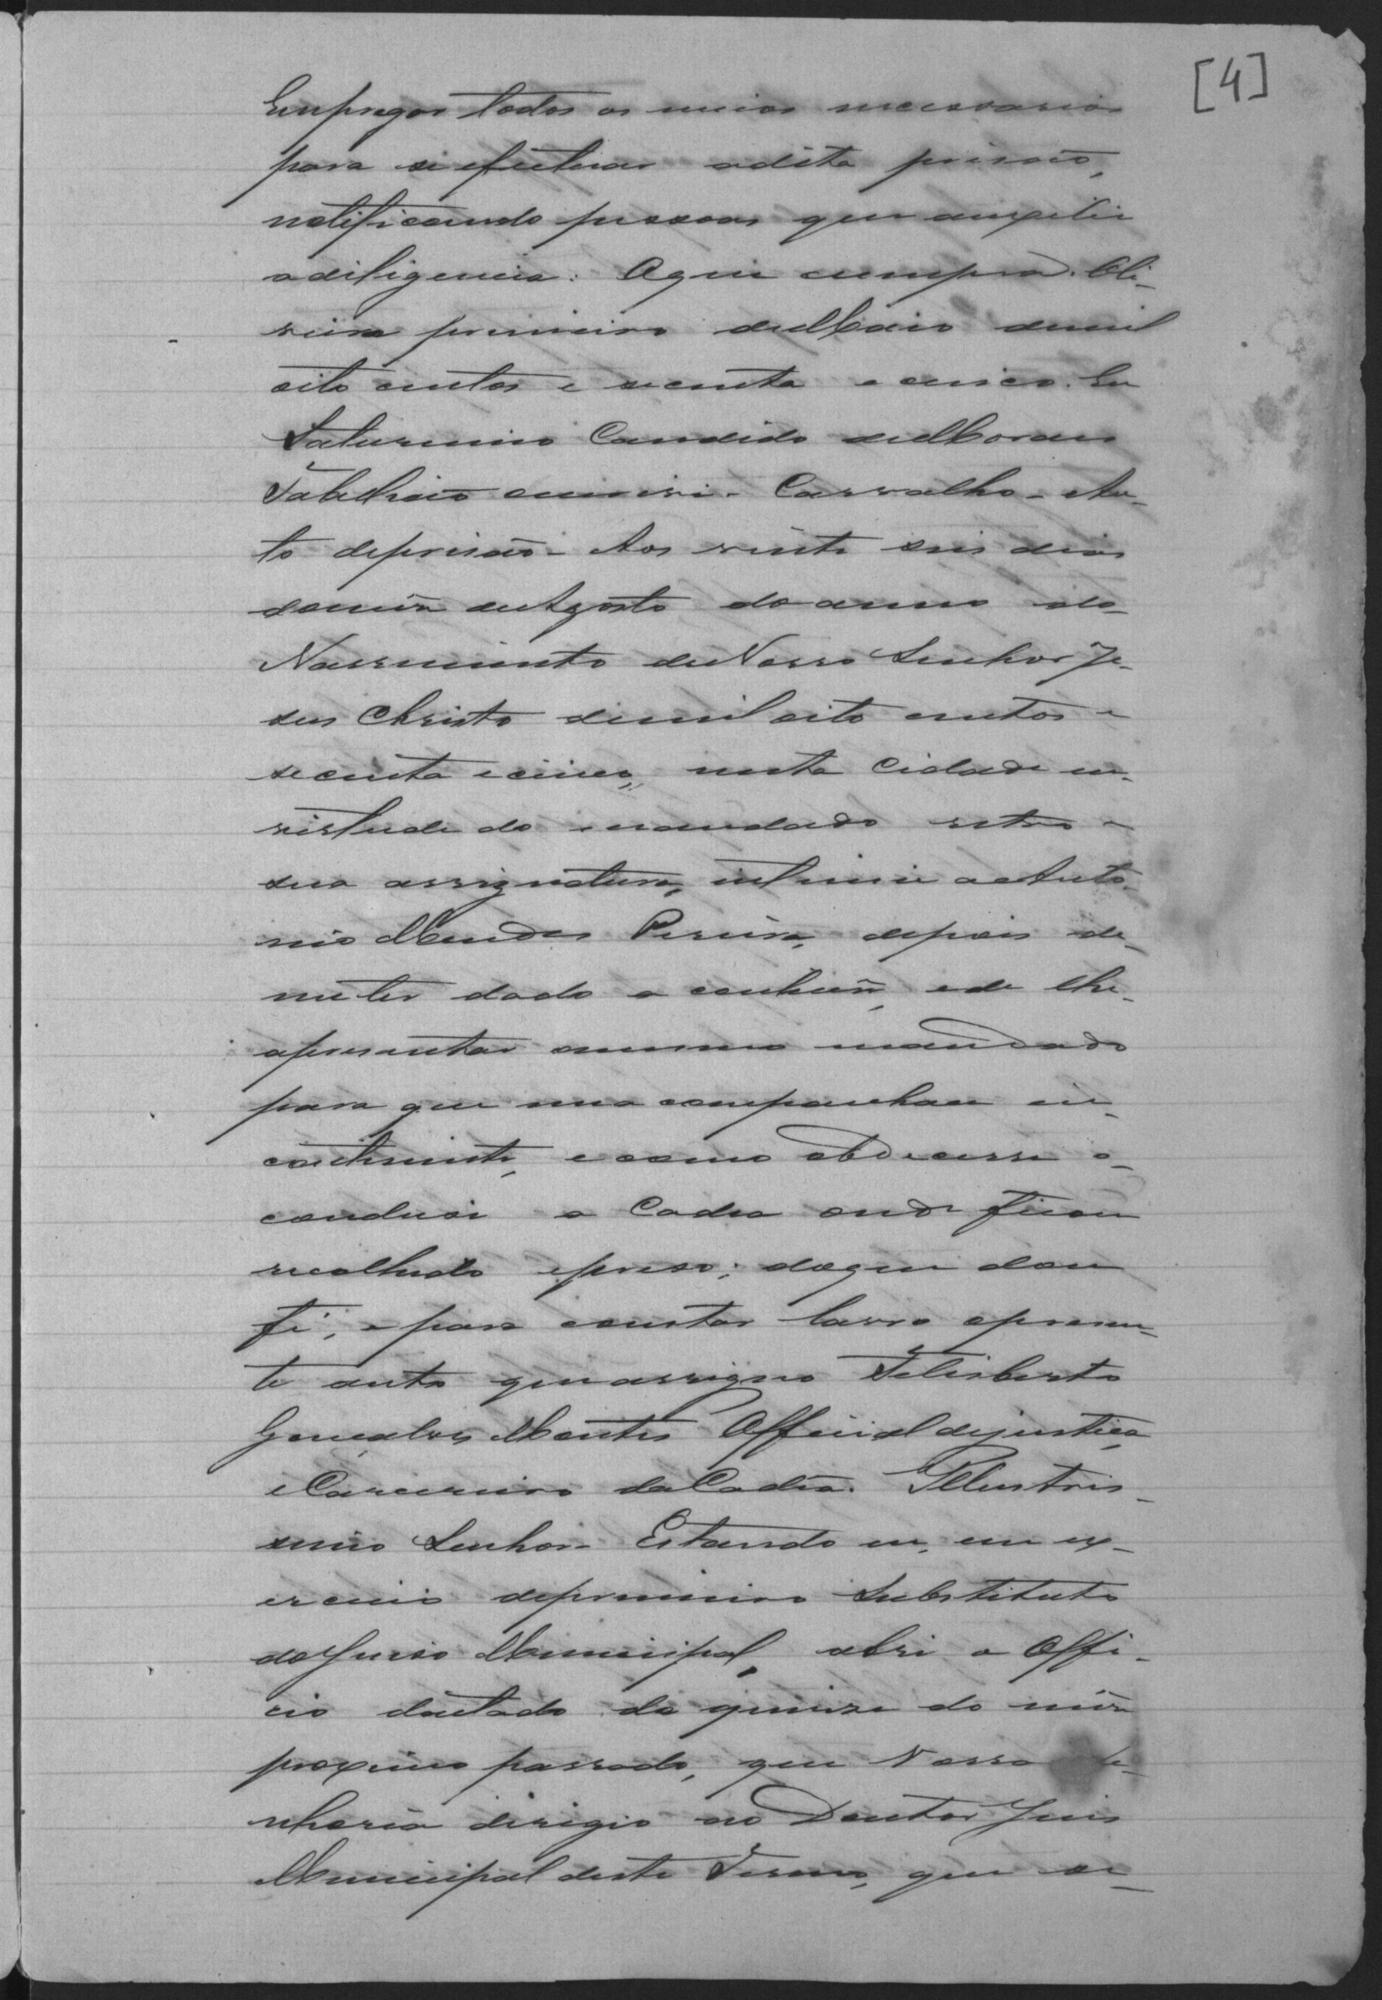 [4]
Empregos todos os meios necessarios
para se effectuar adita prisaõ,
notificando pessoas que auxilie
adiligencia: O que cumpra. Oli-
veira primeiro deMaio demil
oito centos e secenta e cinco. Eu
Saturnino Candido deMoraes
Tabelliaõ escrevi. Carvalho - Au-
to deprisaõ - Aos vinte seis dias
domêz deAgosto do anno do
Nascimento deNosso Senhor Je-
sus Christo demil oito centos e
secenta ecinco, nesta Cidade em
virtude do mandado retro e
sua assignatura, intimei a Anto-
nio Mendes Pereira, depois de
meter dado a conhecêr, ede lhe
apresentar omesmo mandado
para que me acompanhace in-
continente, e como obdecesse o
conduzi a Cadea onde ficou
recolhido epreso; doque dou
fé, e para constar lavro opresen-
te auto queassigno Felisberto
Gonçalves Montes Official dejustiça
e Carcereiro daCadêa. Illustris-
simo Senhor - Estando eu, em ex-
ercicio deprimeiro Substituto
doJuizo Municipal, abri o Offi-
cio dâtado de quinze do mêz
proximo passado, que Vossa Se-
nhoria dirigio ao Doutor Juis
Municipal deste Termo, que se